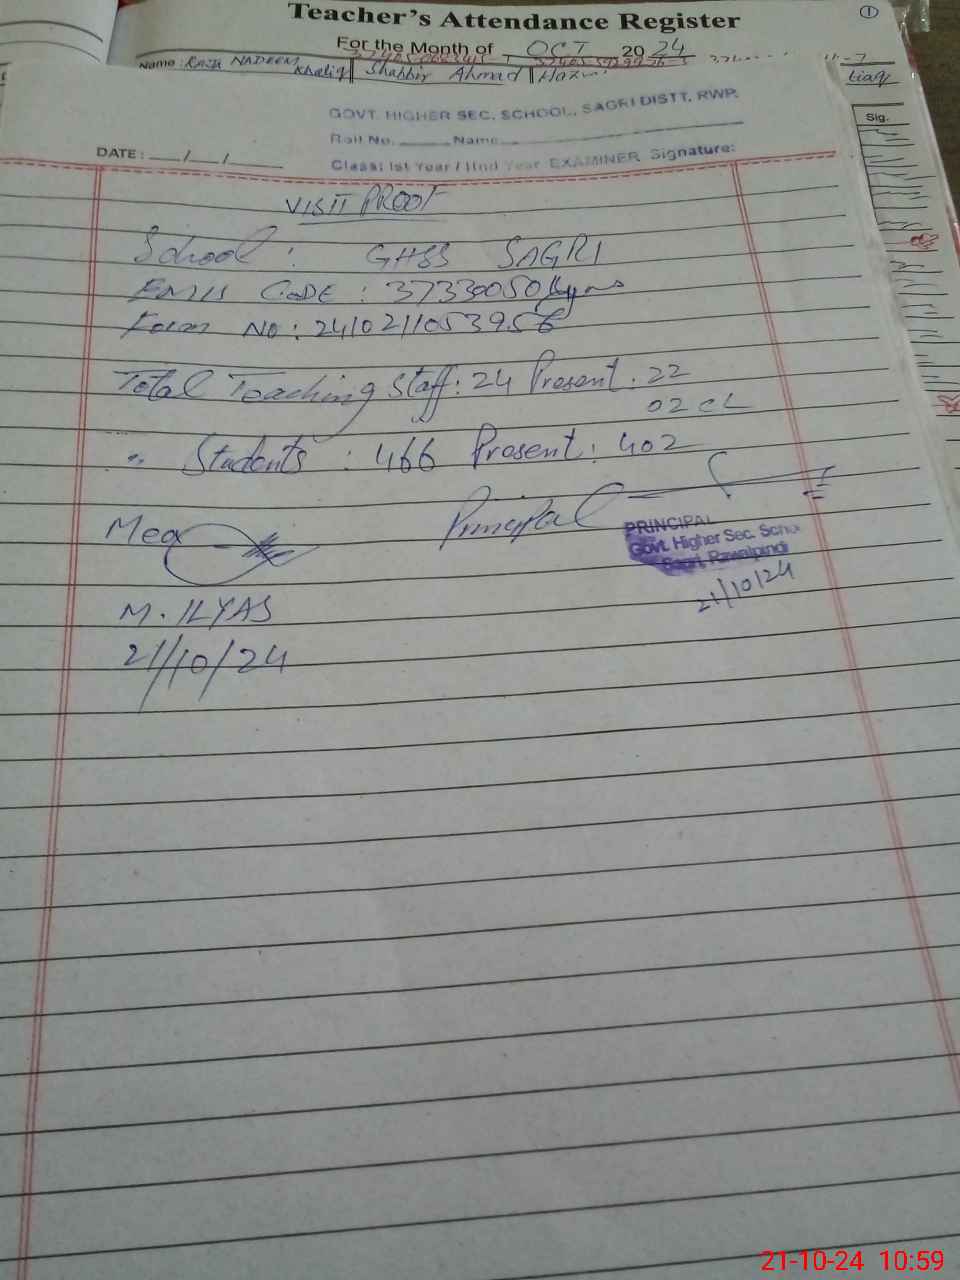 Teacher's Attendance Register
1
For the Month of OCT 2024
Name: RAJA NADEEM
Khaliq Shabbir Ahmad
liaq
Sig.
GOVT. HIGHER SEC. SCHOOL, SAGRI DISTT. RWP.
Roll No. Name
DATE: / /
Class: 1st Year / IInd Year EXAMINER Signature:
VISIT PROOF
School : GHSS SAGRI
EMIS CODE : 37330050
Form NO: 241021105395
Total Teaching Staff: 24 Present: 22
02 CL
" Students : 466 Present: 402
Mea
Principal
PRINCIPAL
Govt. Higher Sec. Scho
Sagri, Rawalpindi
21/10/24
M. ILYAS
21/10/24
21-10-24 10:59